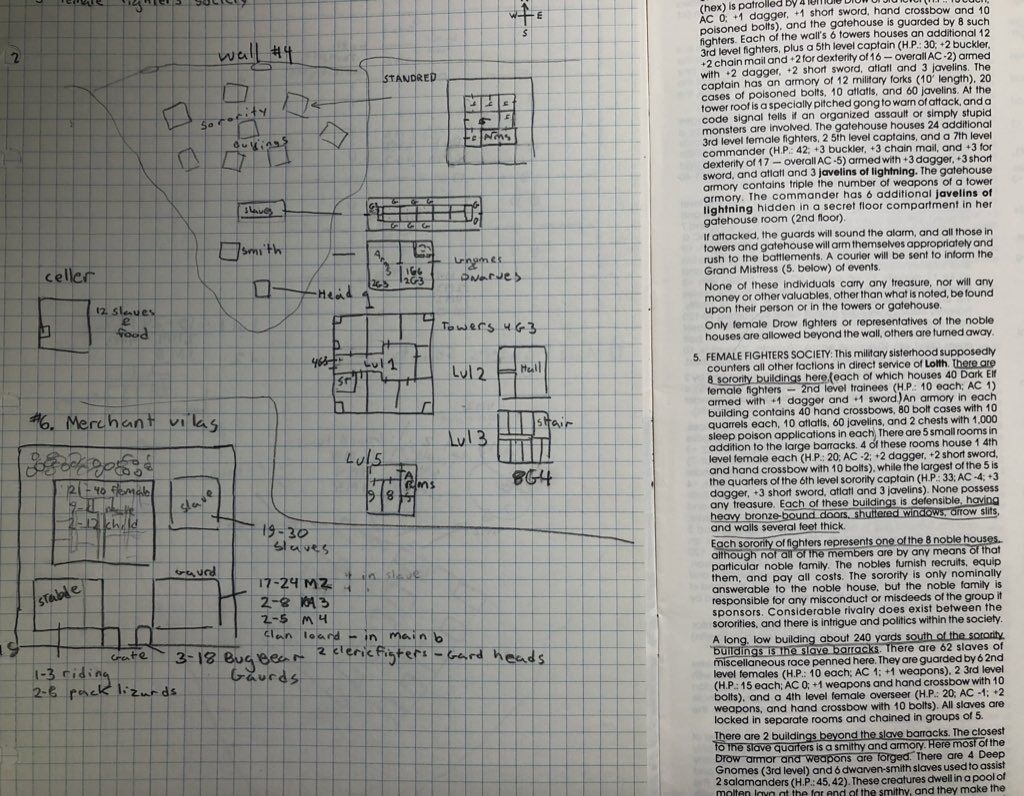 female fighters society
W E
S
2
Wall #4
STANDRED
Sorority
Arms
slaves
G G G
G G G
Smith
Gnomes
&
Dnarves
2G3
2G3
Head
1
celler
12 slaves
&
food
Towers 4G3
4G3
Lvl 1
ST
Lvl 2
Hall
Lvl 3
stair
8G4
Lvl 5
9 8
ms
#6. Merchant vilas
21-40 female
2-12 child
slave
19-30
slaves
stable
Gaurd
17-24 M2
4 in slave
2-8 M3
2-5 M4
clan loard - in main b
2 clericfigters - Gard heads
Gate
3-18 BugBear
Gaurds
1-3 riding
2-8 pack lizards
AC 0; +1 dagger, +1 short sword, hand crossbow and 10
poisoned bolts), and the gatehouse is guarded by 8 such
fighters. Each of the wall's 6 towers houses an additional 12
3rd level fighters, plus a 5th level captain (H.P.: 30; +2 buckler,
+2 chain mail and +2 for dexterity of 16 — overall AC -2) armed
with +2 dagger, +2 short sword, atlatl and 3 javelins. The
captain has an armory of 12 military forks (10' length), 20
cases of poisoned bolts, 10 atlatls, and 60 javelins. At the
tower roof is a specially pitched gong to warn of attack, and a
code signal tells if an organized assault or simply stupid
monsters are involved. The gatehouse houses 24 additional
3rd level female fighters, 2 5th level captains, and a 7th level
commander (H.P.: 42; +3 buckler, +3 chain mail, and +3 for
dexterity of 17 — overall AC -5) armed with +3 dagger, +3 short
sword, and atlatl and 3 javelins of lightning. The gatehouse
armory contains triple the number of weapons of a tower
armory. The commander has 6 additional javelins of
lightning hidden in a secret floor compartment in her
gatehouse room (2nd floor).
If attacked, the guards will sound the alarm, and all those in
towers and gatehouse will arm themselves appropriately and
rush to the battlements. A courier will be sent to inform the
Grand Mistress (5. below) of events.
None of these individuals carry any treasure, nor will any
money or other valuables, other than what is noted, be found
upon their person or in the towers or gatehouse.
Only female Drow fighters or representatives of the noble
houses are allowed beyond the wall, others are turned away.
5. FEMALE FIGHTERS SOCIETY: This military sisterhood supposedly
counters all other factions in direct service of Lolth. There are
8 sorority buildings here, (each of which houses 40 Dark Elf
female fighters — 2nd level trainees (H.P.: 10 each; AC 1)
armed with +1 dagger and +1 sword.) An armory in each
building contains 40 hand crossbows, 80 bolt cases with 10
quarrels each, 10 atlatls, 60 javelins, and 2 chests with 1,000
sleep poison applications in each. There are 5 small rooms in
addition to the large barracks. 4 of these rooms house 1 4th
level female each (H.P.: 20; AC -2; +2 dagger, +2 short sword,
and hand crossbow with 10 bolts), while the largest of the 5 is
the quarters of the 6th level sorority captain (H.P.: 33; AC -4; +3
dagger, +3 short sword, atlatl and 3 javelins). None possess
any treasure. Each of these buildings is defensible, having
heavy bronze-bound doors, shuttered windows, arrow slits,
and walls several feet thick.
Each sorority of fighters represents one of the 8 noble houses,
although not all of the members are by any means of that
particular noble family. The nobles furnish recruits, equip
them, and pay all costs. The sorority is only nominally
answerable to the noble house, but the noble family is
responsible for any misconduct or misdeeds of the group it
sponsors. Considerable rivalry does exist between the
sororities, and there is intrigue and politics within the society.
A long, low building about 240 yards south of the sorority
buildings is the slave barracks. There are 62 slaves of
miscellaneous race penned here. They are guarded by 6 2nd
level females (H.P.: 10 each; AC 1; +1 weapons), 2 3rd level
(H.P.: 15 each; AC 0; +1 weapons and hand crossbow with 10
bolts), and a 4th level female overseer (H.P.: 20; AC -1; +2
weapons, and hand crossbow with 10 bolts). All slaves are
locked in separate rooms and chained in groups of 5.
There are 2 buildings beyond the slave barracks. The closest
to the slave quarters is a smithy and armory. Here most of the
Drow armor and weapons are forged. There are 4 Deep
Gnomes (3rd level) and 6 dwarven-smith slaves used to assist
2 salamanders (H.P.: 45, 42). These creatures dwell in a pool of
molten lava at the far end of the smithy, and they make the